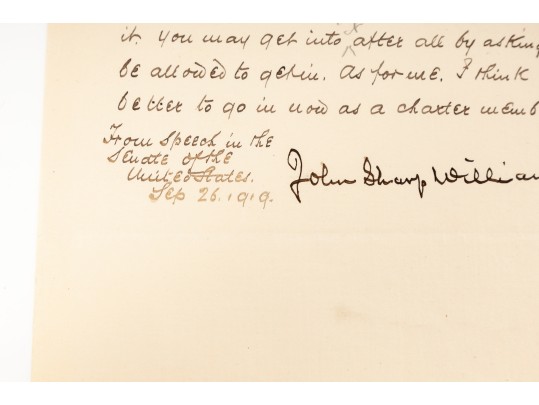 it. You may get into after all by asking
be allowed to get in. As for me. I think
better to go in now as a charter memb
From Speech in the
Senate of the
United States.
Sep 26. 1919.
John Sharp William